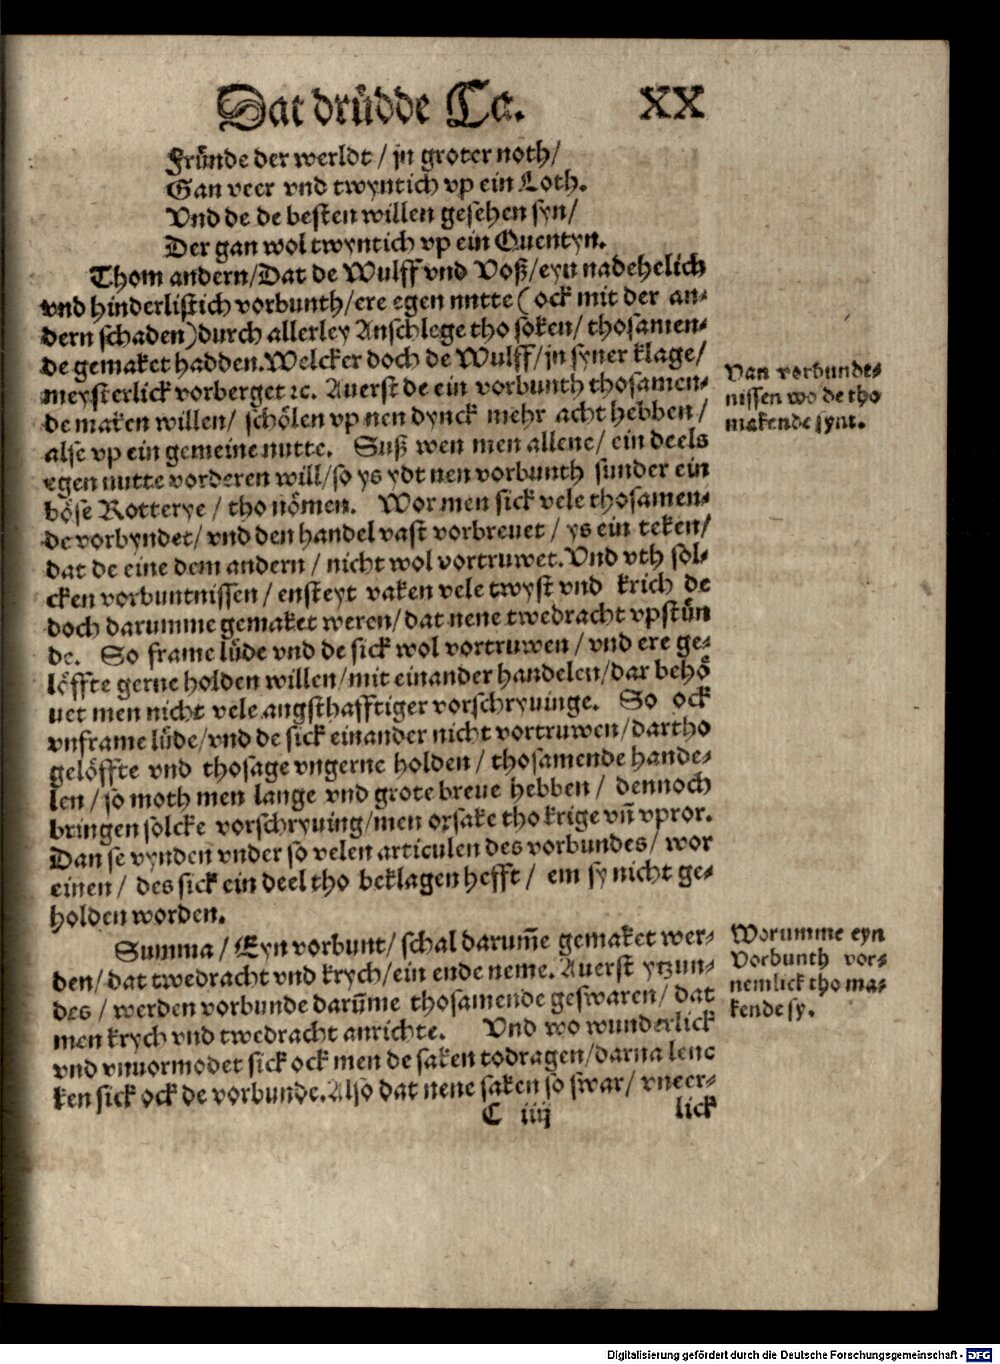 Dat drüdde Ca. XX
Fründe der werldt / jn groter noth /
Gan veer vnd twyntich vp ein Loth.
Vnd de de besten willen gesehen syn /
Der gan wol twyntich vp ein Quentyn.
Thom andern / Dat de Wulff vnd Voß / eyn nadehelich
vnd hinderlistich vorbunth / ere egen nutte ( ock mit der an⸗
dern schaden ) durch allerley Anschlege tho soken / thosamen⸗
de gemaket hadden. Welcker doch de Wulff / jn syner klage /
meysterlick vorberget ꝛc. Auerst de ein vorbunth thosamen⸗
de maken willen / schölen vp nen dynck mehr acht hebben /
alse vp ein gemeine nutte. Suß wen men allene / ein deels
egen nutte vorderen will / so ys ydt nen vorbunth sunder ein
böse Rotterye / tho nömen. Wor men sick vele thosamen⸗
de vorbyndet / vnd den handel vast vorbreuet / ys ein teken /
dat de eine dem andern / nicht wol vortruwet. Vnd vth sol⸗
cken vorbuntnissen / ensteyt vaken vele twyst vnd krich de
doch darumme gemaket weren / dat nene twedracht vpstün
de. So frame lüde vnd de sick wol vortruwen / vnd ere ge⸗
löffte gerne holden willen / mit einander handelen / dar behö
uet men nicht vele angsthafftiger vorschryuinge. So ock
vnframe lüde / vnd de sick einander nicht vortruwen / dartho
gelöffte vnd thosage vngerne holden / thosamende hande⸗
len / so moth men lange vnd grote breue hebben / dennoch
bringen solcke vorschryuing / men orsake tho krige vn̄ vpror.
Dan se vynden vnder so velen articulen des vorbundes / wor
einen / des sick ein deel tho beklagen hefft / em sy nicht ge⸗
holden worden.
Summa / Eyn vorbunt / schal darum̄e gemaket wer⸗
den / dat twedracht vnd krych / ein ende neme. Auerst ytzun⸗
des / werden vorbunde darūme thosamende geswaren / dat
men krych vnd twedracht anrichte. Vnd wo wunderlick
vnd vnuormodet sick ock men de saken todragen / darna lenc
ken sick ock de vorbunde. Also dat nene saken so swar / vneer⸗
C iiij lick
Van vorbunde⸗
nissen wo de tho
makende synt.
Worumme eyn
Vorbunth vor⸗
nemlick tho ma⸗
kende sy.
Digitalisierung gefördert durch die Deutsche Forschungsgemeinschaft - DFG